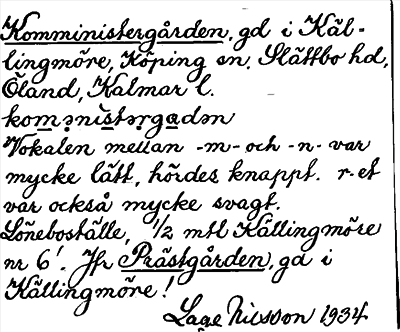 Komministergården, gd i Käl-
lingmöre, Köping sn, Slättbo hd,
Öland, Kalmar l.
komənistərgadən
Vokalen mellan -m- och -n- var
mycke lätt, hördes knappt. r-et
var också mycke svagt.
Löneboställe, 1/2 mtl Källingmöre
nr 6'. Jfr Prästgården, gd i
Källingmöre!
Lage Nilsson 1934